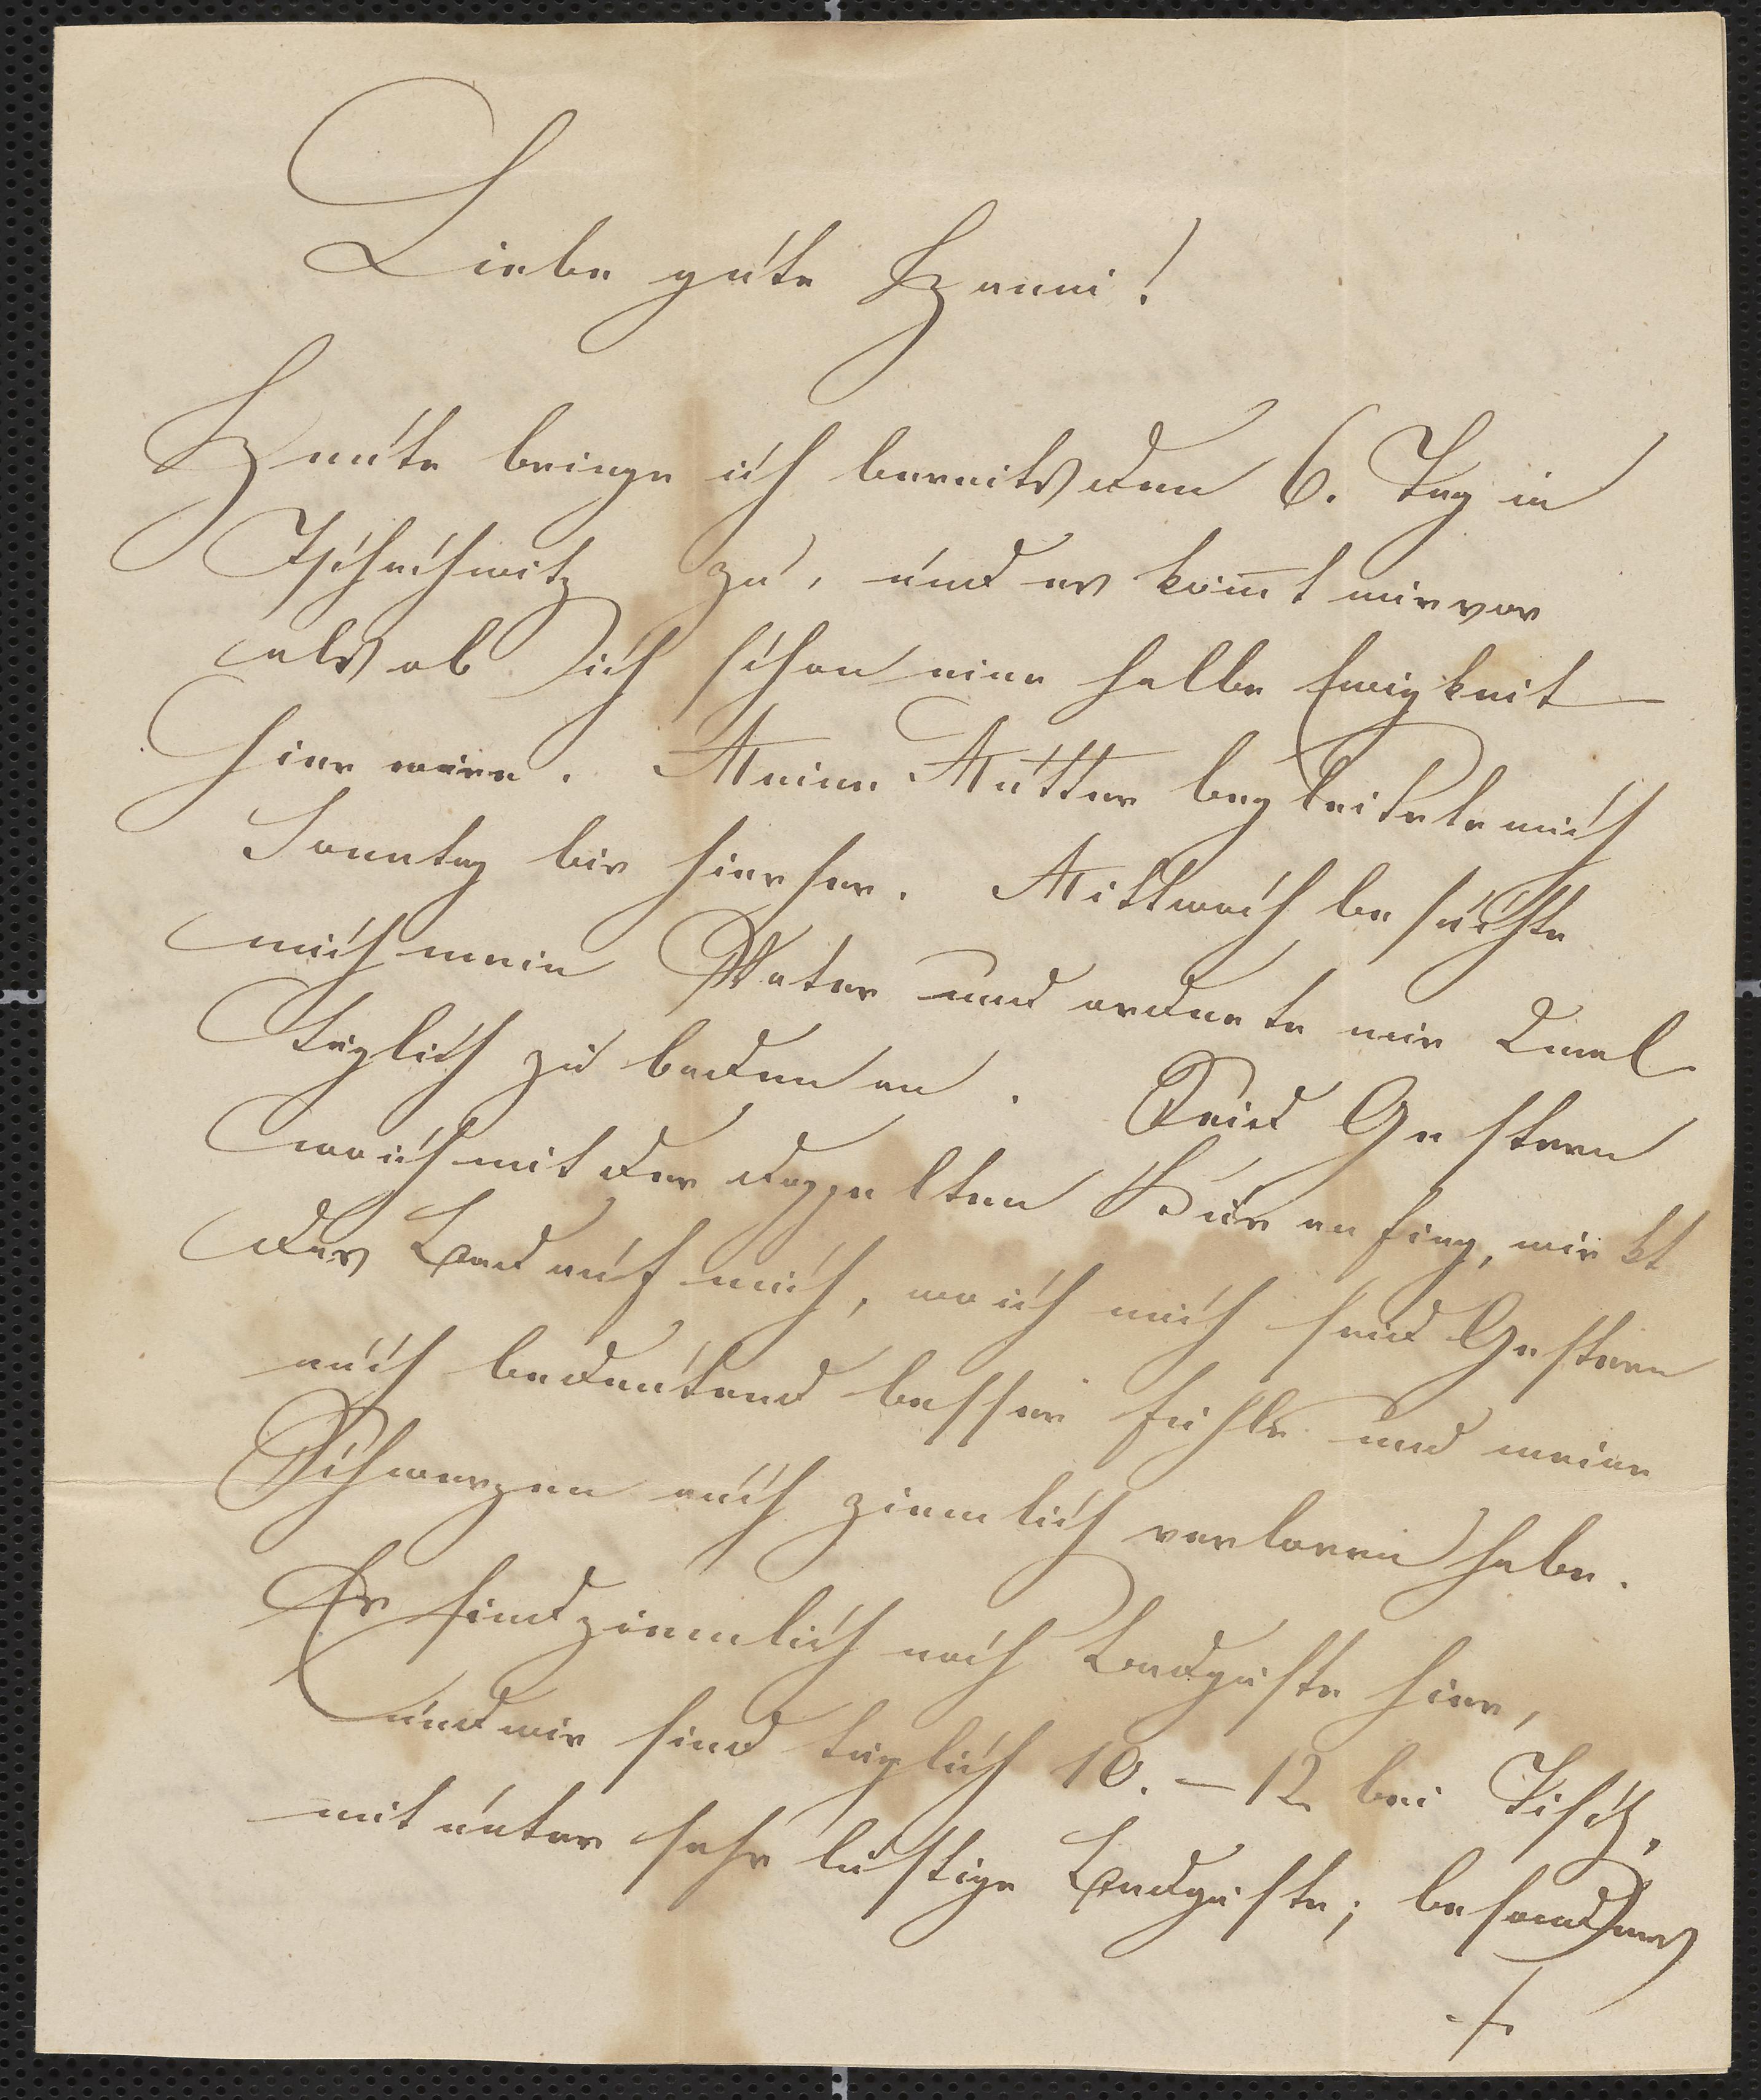 Liebe gute Hanni!
Heute bringe ich bereits den 6. Tag in
Tschechwitz zu, und es kom̅t mir vor
als ob ich schon eine halbe Ewigkeit
hier wäre. Meine Mutter begleitete mich
Sonntag bis hierher. Mittwoch besuchte
mich mein Vater und ordnete mir 2mal
täglich zu baden an. Seid Gestern
wo ich mit der doppelten Kur anfing, wirkt
das Bad auf mich, wo ich mich seid Gestern
auch bedeutend besser fühle und meine
Schmerzen auch ziemlich verloren habe.
Es sind ziemlich noch Badgäste hier,
und wir sind täglich 10.–12 bei Tisch,
mitunter sehr lustige Badgäste; besonders
./.